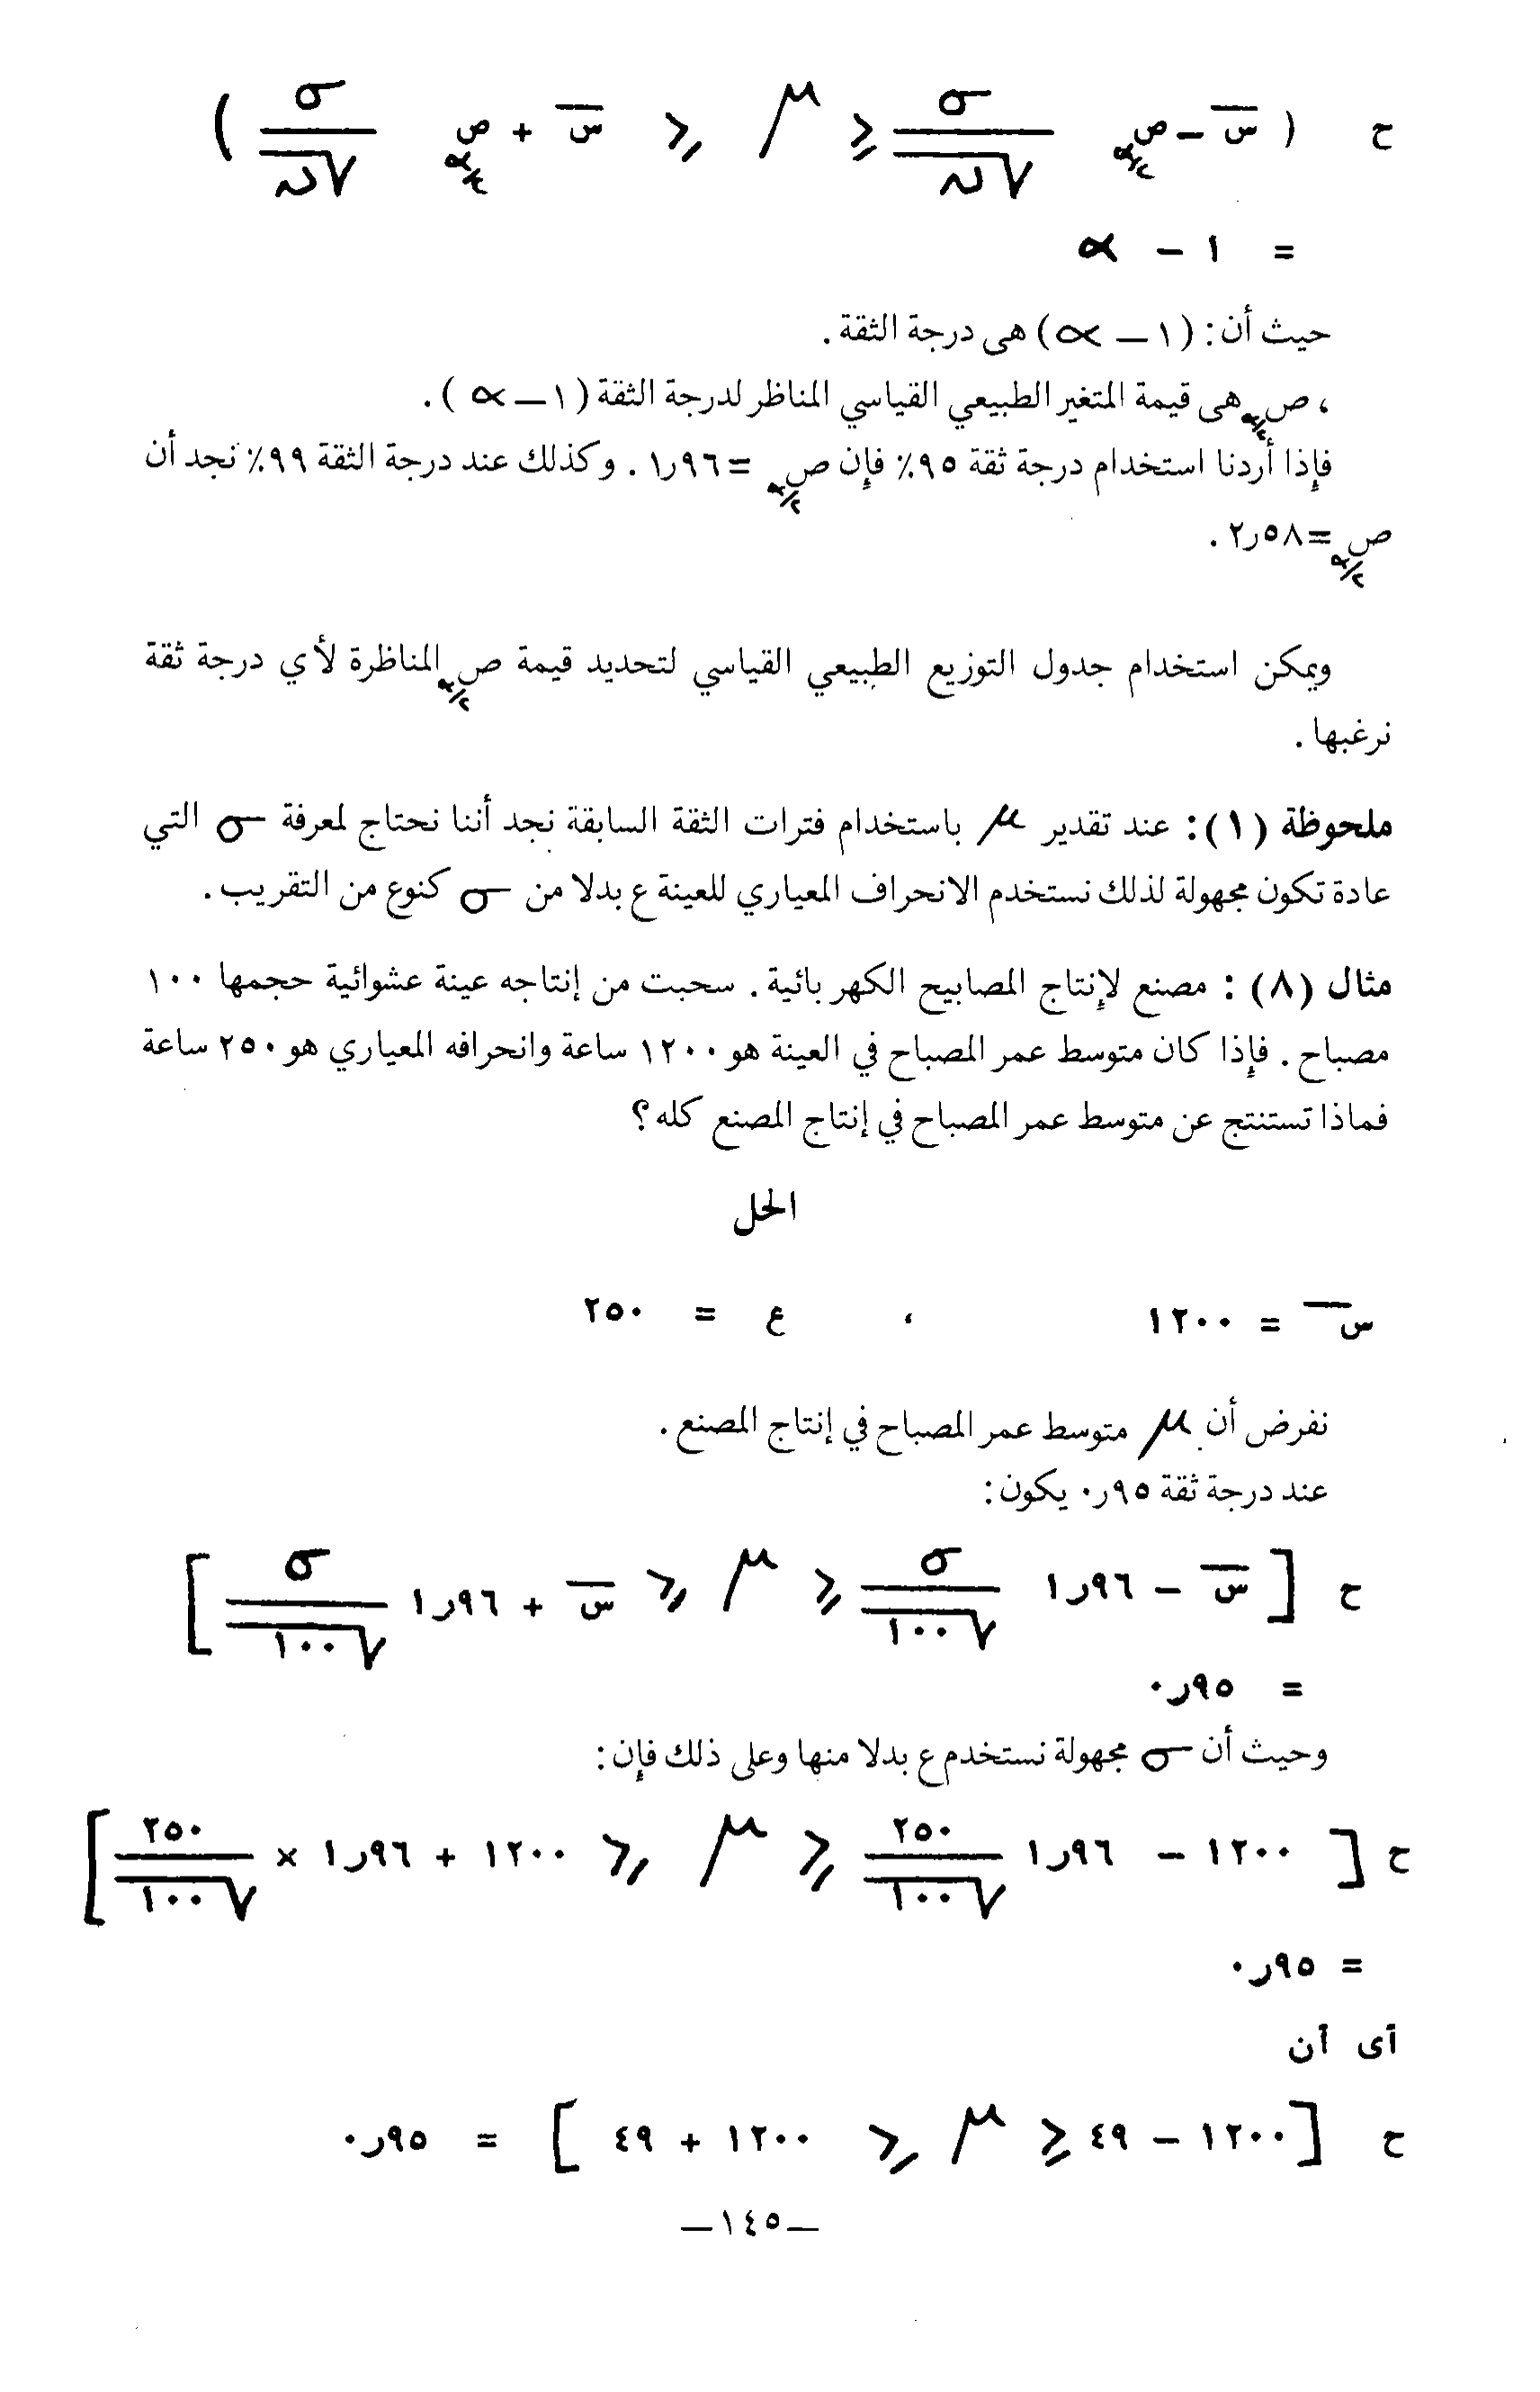 ح ( س̅ − ص α/٢ σ/√ن ≥ μ ≥ س̅ + ص α/٢ σ/√ن )
= ١ − α
حيث أن: (١ − α) هى درجة الثقة.
، ص α/٢ هى قيمة المتغير الطبيعي القياسي المناظر لدرجة الثقة (١ − α).
فإذا أردنا استخدام درجة ثقة ٩٥٪ فإن ص α/٢ = ١ر٩٦ . وكذلك عند درجة الثقة ٩٩٪ نجد أن
ص α/٢ = ٢ر٥٨ .
ويمكن استخدام جدول التوزيع الطبيعي القياسي لتحديد قيمة ص α/٢ المناظرة لأي درجة ثقة
نرغبها .
ملحوظة (١): عند تقدير μ باستخدام فترات الثقة السابقة نجد أننا نحتاج لمعرفة σ التي
عادة تكون مجهولة لذلك نستخدم الانحراف المعياري للعينة ع بدلا من σ كنوع من التقريب.
مثال (٨) : مصنع لإنتاج المصابيح الكهربائية. سحبت من إنتاجه عينة عشوائية حجمها ١٠٠
مصباح. فإذا كان متوسط عمر المصباح في العينة هو ١٢٠٠ ساعة وانحرافه المعياري هو ٢٥٠ ساعة
فماذا تستنتج عن متوسط عمر المصباح في إنتاج المصنع كله؟
الحل
س̅ = ١٢٠٠ ، ع = ٢٥٠
نفرض أن μ متوسط عمر المصباح في إنتاج المصنع.
عند درجة ثقة ٠ر٩٥ يكون:
ح [ س̅ − ١ر٩٦ σ/√١٠٠ ≥ μ ≥ س̅ + ١ر٩٦ σ/√١٠٠ ]
= ٠ر٩٥
وحيث أن σ مجهولة نستخدم ع بدلا منها وعلى ذلك فإن:
ح [ ١٢٠٠ − ١ر٩٦ ٢٥٠/√١٠٠ ≥ μ ≥ ١٢٠٠ + ١ر٩٦ × ٢٥٠/√١٠٠ ]
= ٠ر٩٥
أى أن
ح [ ١٢٠٠ − ٤٩ ≥ μ ≥ ١٢٠٠ + ٤٩ ] = ٠ر٩٥
—١٤٥—